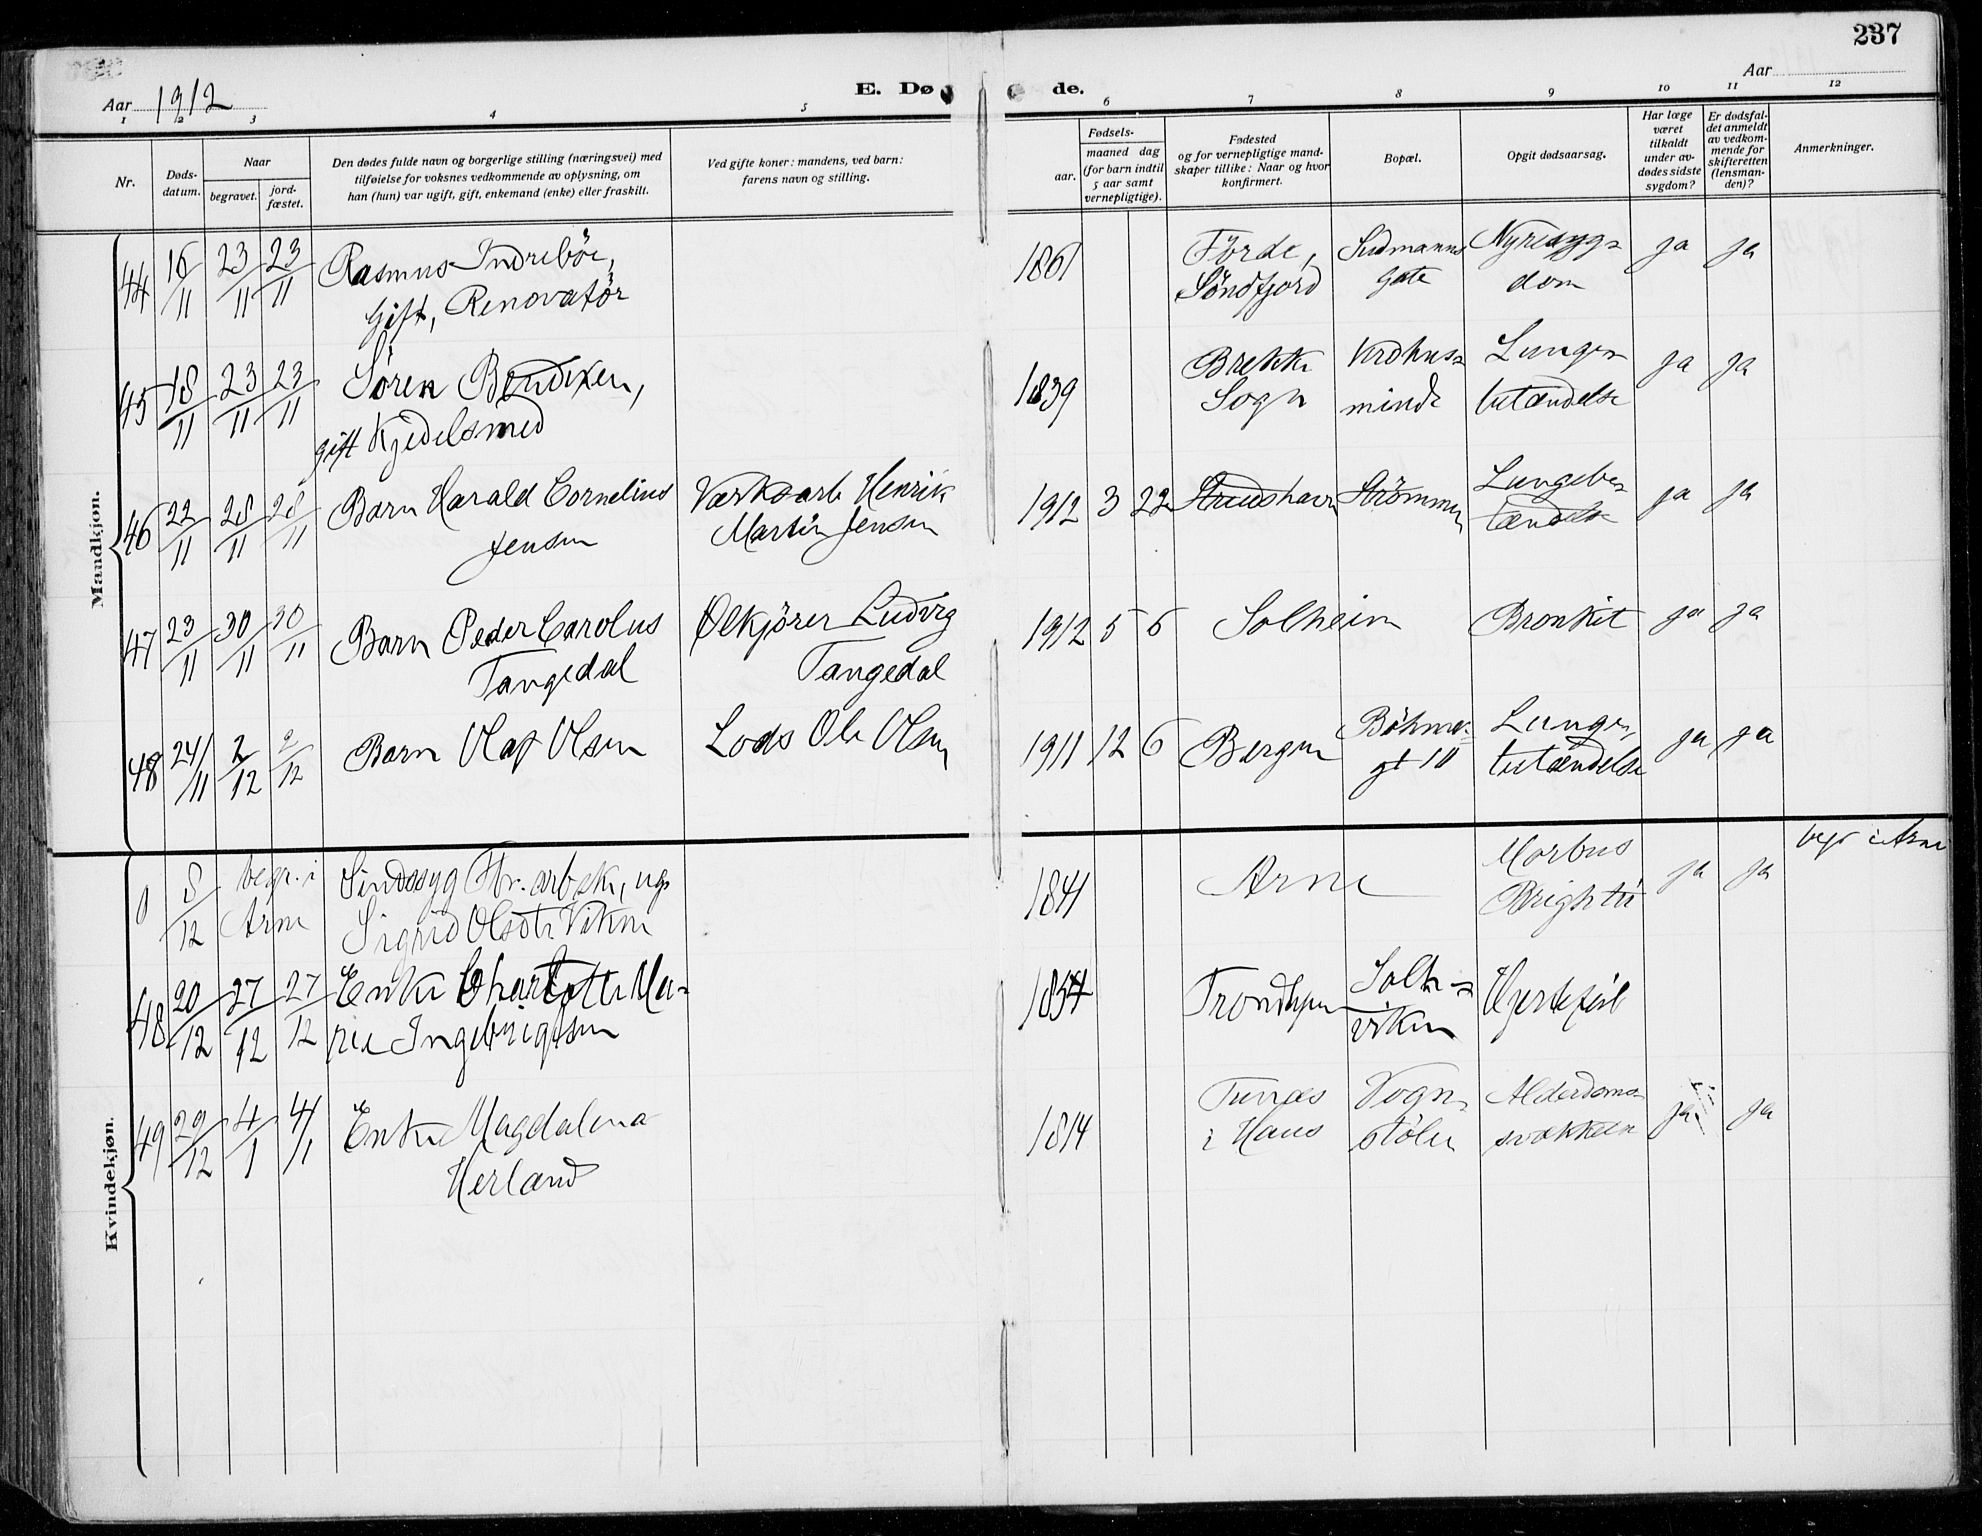 237
Aar 1912
E. Dø
de.
Aar
1 2 3 4 5 6 7 8 9 10 11 12
Nr.
Døds-
datum.
Naar
begravet.
jord-
fæstet.
Den dødes fulde navn og borgerlige stilling (næringsvei) med
tilføielse for voksnes vedkommende av oplysning, om
han (hun) var ugift, gift, enkemand (enke) eller fraskilt.
Ved gifte koner: mandens, ved barn:
farens navn og stilling.
Fødsels-
aar.
maaned dag
(for barn indtil
5 aar samt
vernepligtige).
Fødested
og for vernepligtige mand-
skaper tillike: Naar og hvor
konfirmert.
Bopæl.
Opgit dødsaarsag.
Har læge
været
tilkaldt
under av-
dødes sidste
sygdom?
Er dødsfal-
det anmeldt
av vedkom-
mende for
skifteretten
(lensman-
den)?
Anmerkninger.
Mandkjøn.
44 16/11 23/11 23/11 Rasmus Indreböe,
gift, Renovatör
1861 Förde,
Söndfjord
Sudmanns
gate
Nyresyg-
dom
ja ja
45 18/11 23/11 23/11 Sören Bendixen,
gift Kjedelsmed
1839 Brekke
Sogn
minde
Lunge-
betændelse
ja ja
46 22/11 28/11 28/11 Barn Harald Cornelius
Jensen
Værksarb Henrik
Martin Jensen
1912 3 22 Strudshavn Strömmen
Lungebe-
tændelse
ja ja
47 23/11 30/11 30/11 Barn Peder Carolus
Tangedal
Ølkjörer Ludvig
Tangedal
1912 5 6 Solheim Bronkit ja ja
48 24/11 2/12 2/12 Barn Olaf Olsen Lods Ole Olsen
1911 12 6 Bergen
Böhmer
gt 10
Lunge
betændelse
ja ja
Kvindekjøn.
0 8/12 begr. i
Arne
Sindssyg Hr. arbsk, ug.
Sigrid Olsdtr Vikne
1841 Arne
Morbus
Brightii
ja ja begr i Arne
48 20/12 27/12 27/12 Enke Charlotte Ma-
rie Ingebrigtsen
1854 Trondhjem
Solhe-
viken
Hjertefeil
49 29/12 4/1 4/1 Enke Magdalena
Herland
1814 Tunæs
i Haus
Vogn-
stölen
Alderdoms-
svækkelse
ja ja